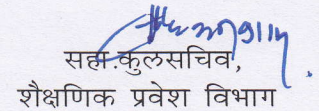 सहा.कुलसचिव,
शैक्षणिक प्रवेश विभाग